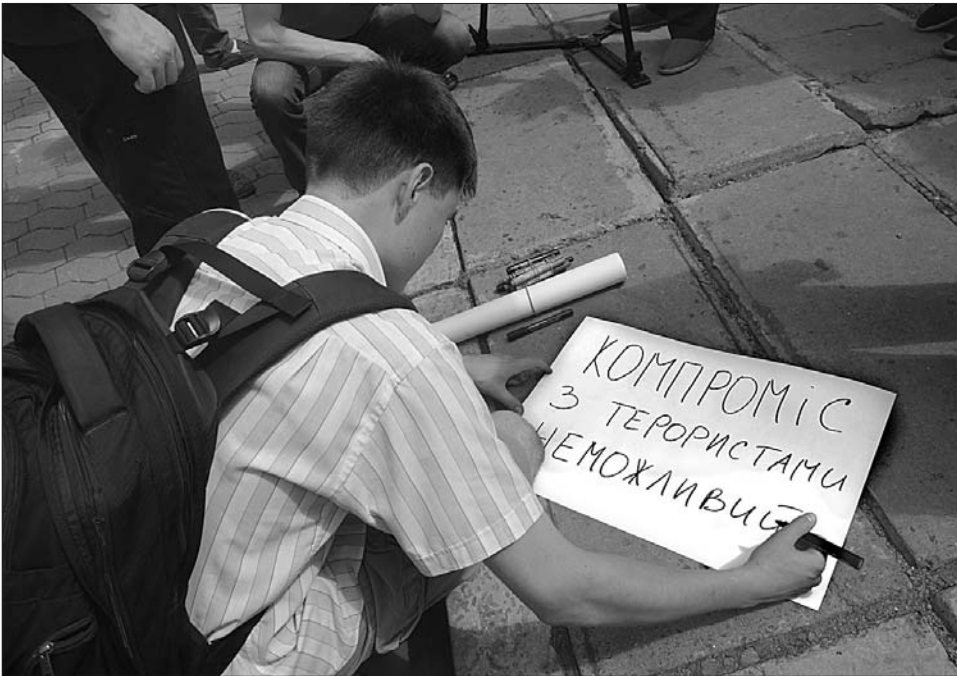 КОМПРОМіС
З ТЕРОРИСТАМИ
НЕМОЖЛИВИЙ